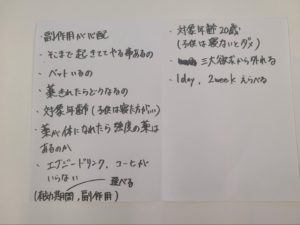 ・副作用が心配
・そこまで起きててやる事あるの
・ペットいるの
・薬きれたらどうなるの
・対象年齢(子供は寝た方がいい)
・薬が体になれたら強度の薬は
あるのか
・エナジードリンク、コーヒーが
いらない
選べる
(効力期間,副作用)
・対象年齢20歳
(子供は寝ないとダメ)
・三大欲求から外れる
・1day, 2week えらべる